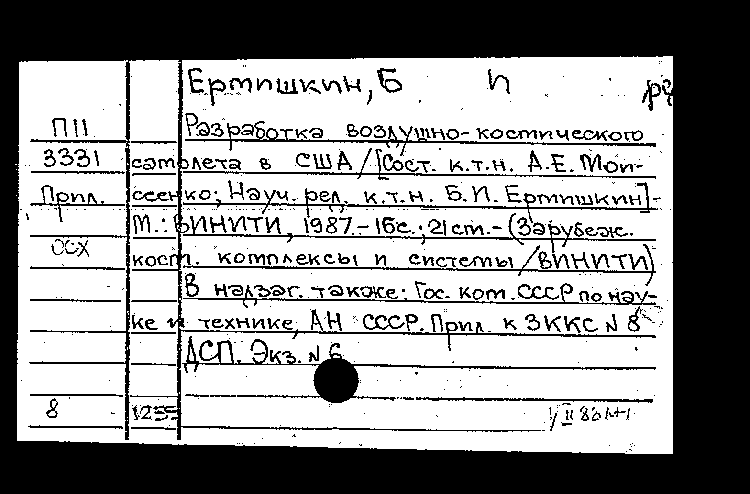 Ермишкин, Б И ре
П11 Разработка воздушно-космического
3331 самолета в США /[Сост. к.т.н. А.Е. Мои-
Прил. сеенко; Науч. ред. к.т.н. Б.И. Ермишкин]-
М.: ВИНИТИ, 1987.-16с.; 21 см.- (Зарубеж.
ОСХ косм. комплексы и системы /ВИНИТИ)
В надзаг. также: Гос. ком. СССР по нау-
ке и технике, АН СССР. Прил. к ЗККС N 8
ДСП. Экз. N 6
8 1255